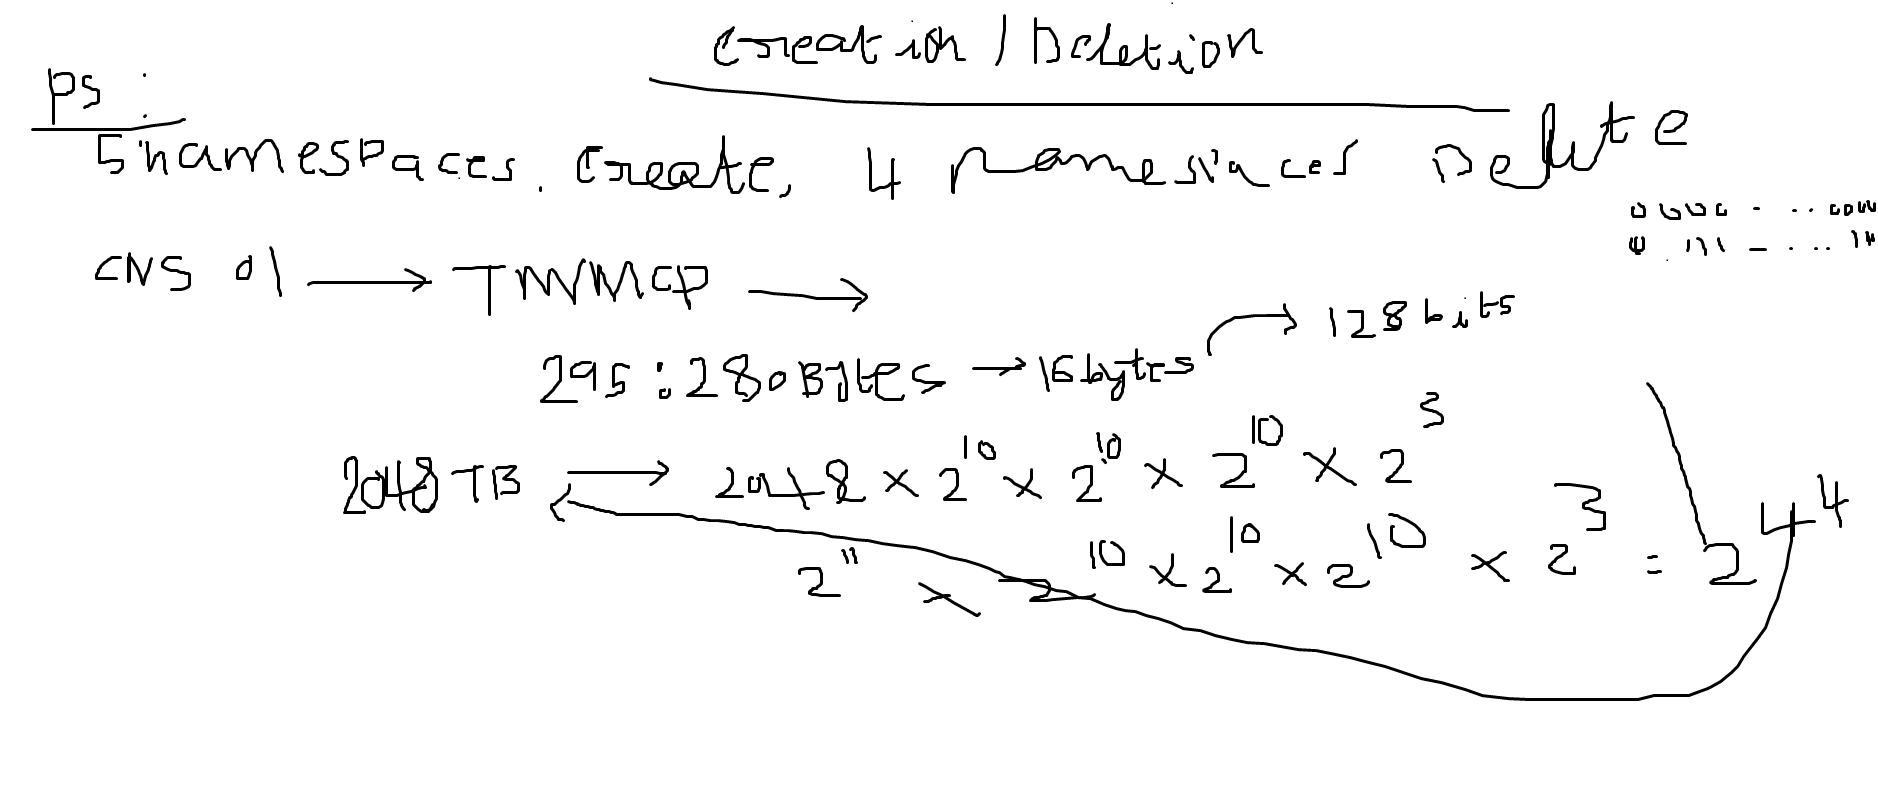 Creation / Deletion
PS :
5 namespaces. Create, 4 namespaces Delete
0000 - .. 0000
0 111 - ... 11
CNS 01 → TNVMCP →
295 : 280 Bytes → 16 bytes → 128 bits
2048 TB → 2048 × 2^10 × 2^10 × 2^10 × 2^3
2^11 × 2^10 × 2^10 × 2^10 × 2^3 = 2^44